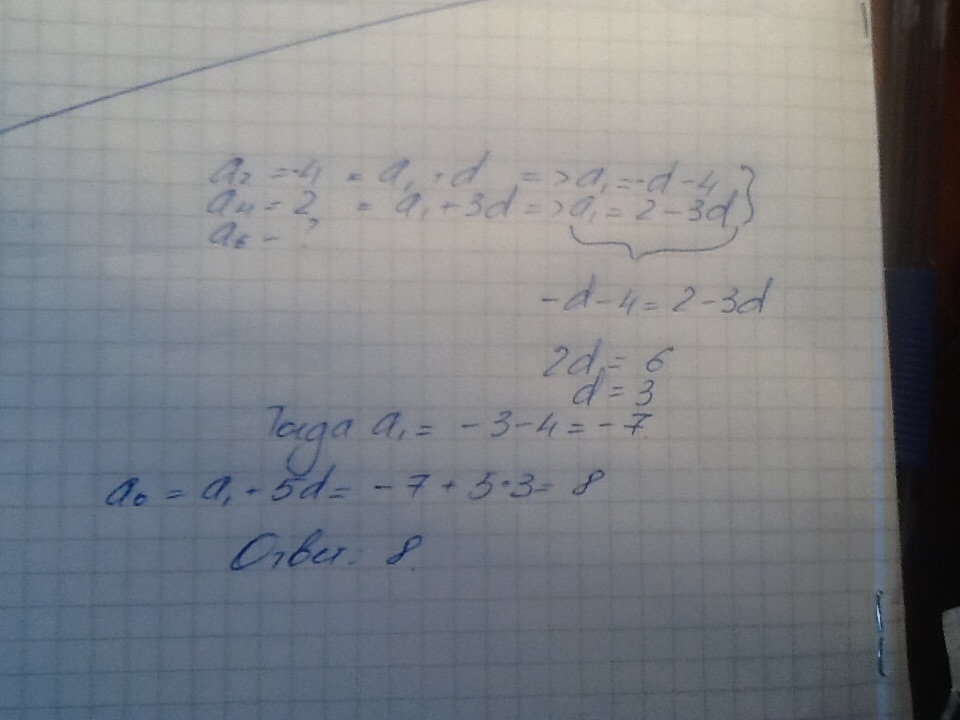 a₂ = -4 = a₁ + d => a₁ = -d - 4
a₄ = 2 = a₁ + 3d => a₁ = 2 - 3d
a₆ - ?
-d - 4 = 2 - 3d
2d = 6
d = 3
Тогда a₁ = -3 - 4 = -7.
a₆ = a₁ + 5d = -7 + 5·3 = 8
Ответ: 8.